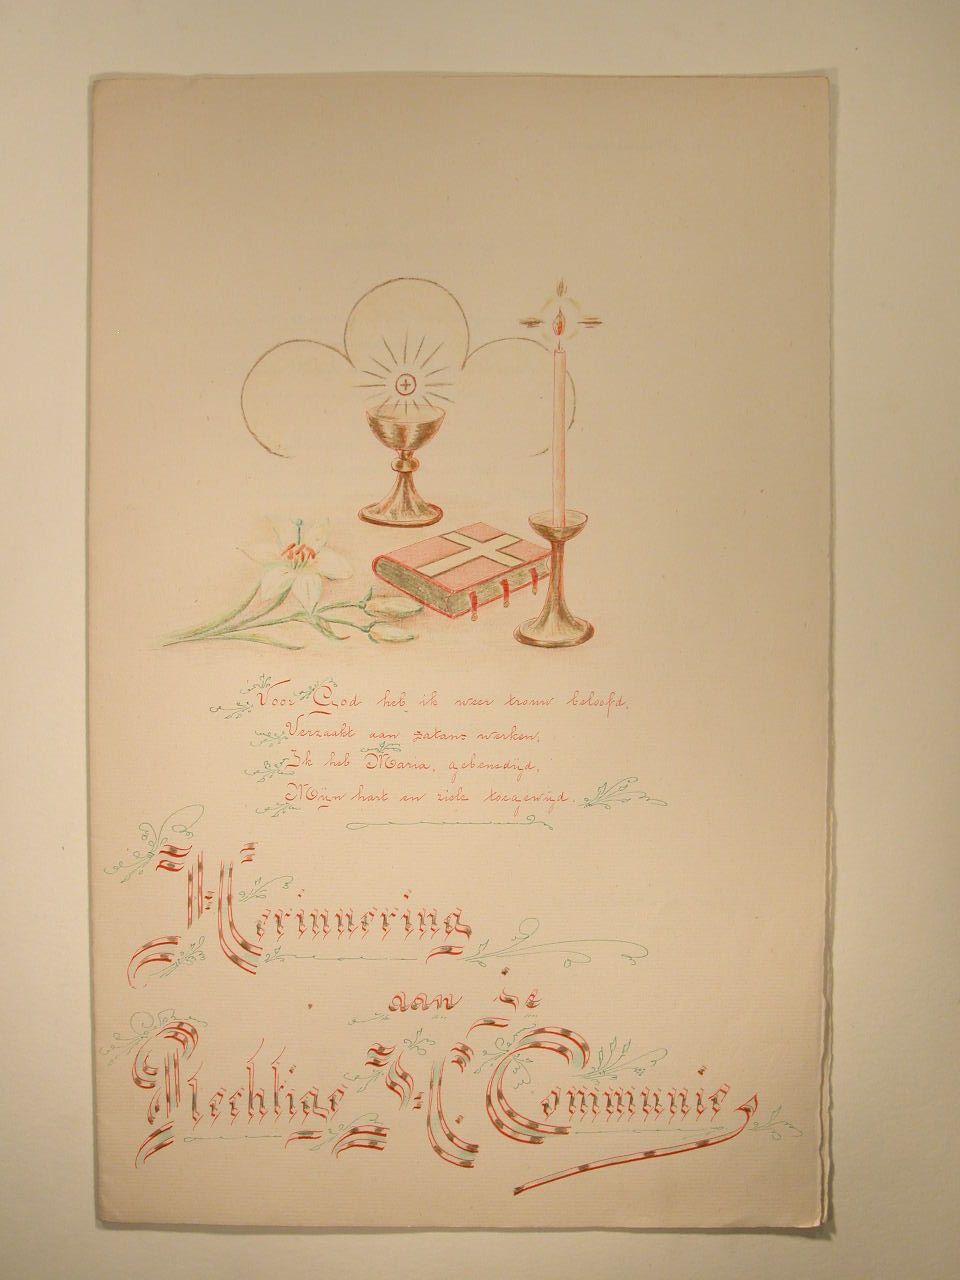 Voor God heb ik weer trouw beloofd,
Verzaakt aan satans werken,
Ik heb Maria, gebenedijd,
Mijn hart en ziele toegewijd.
Herinnering
aan de
Plechtige H. Communie